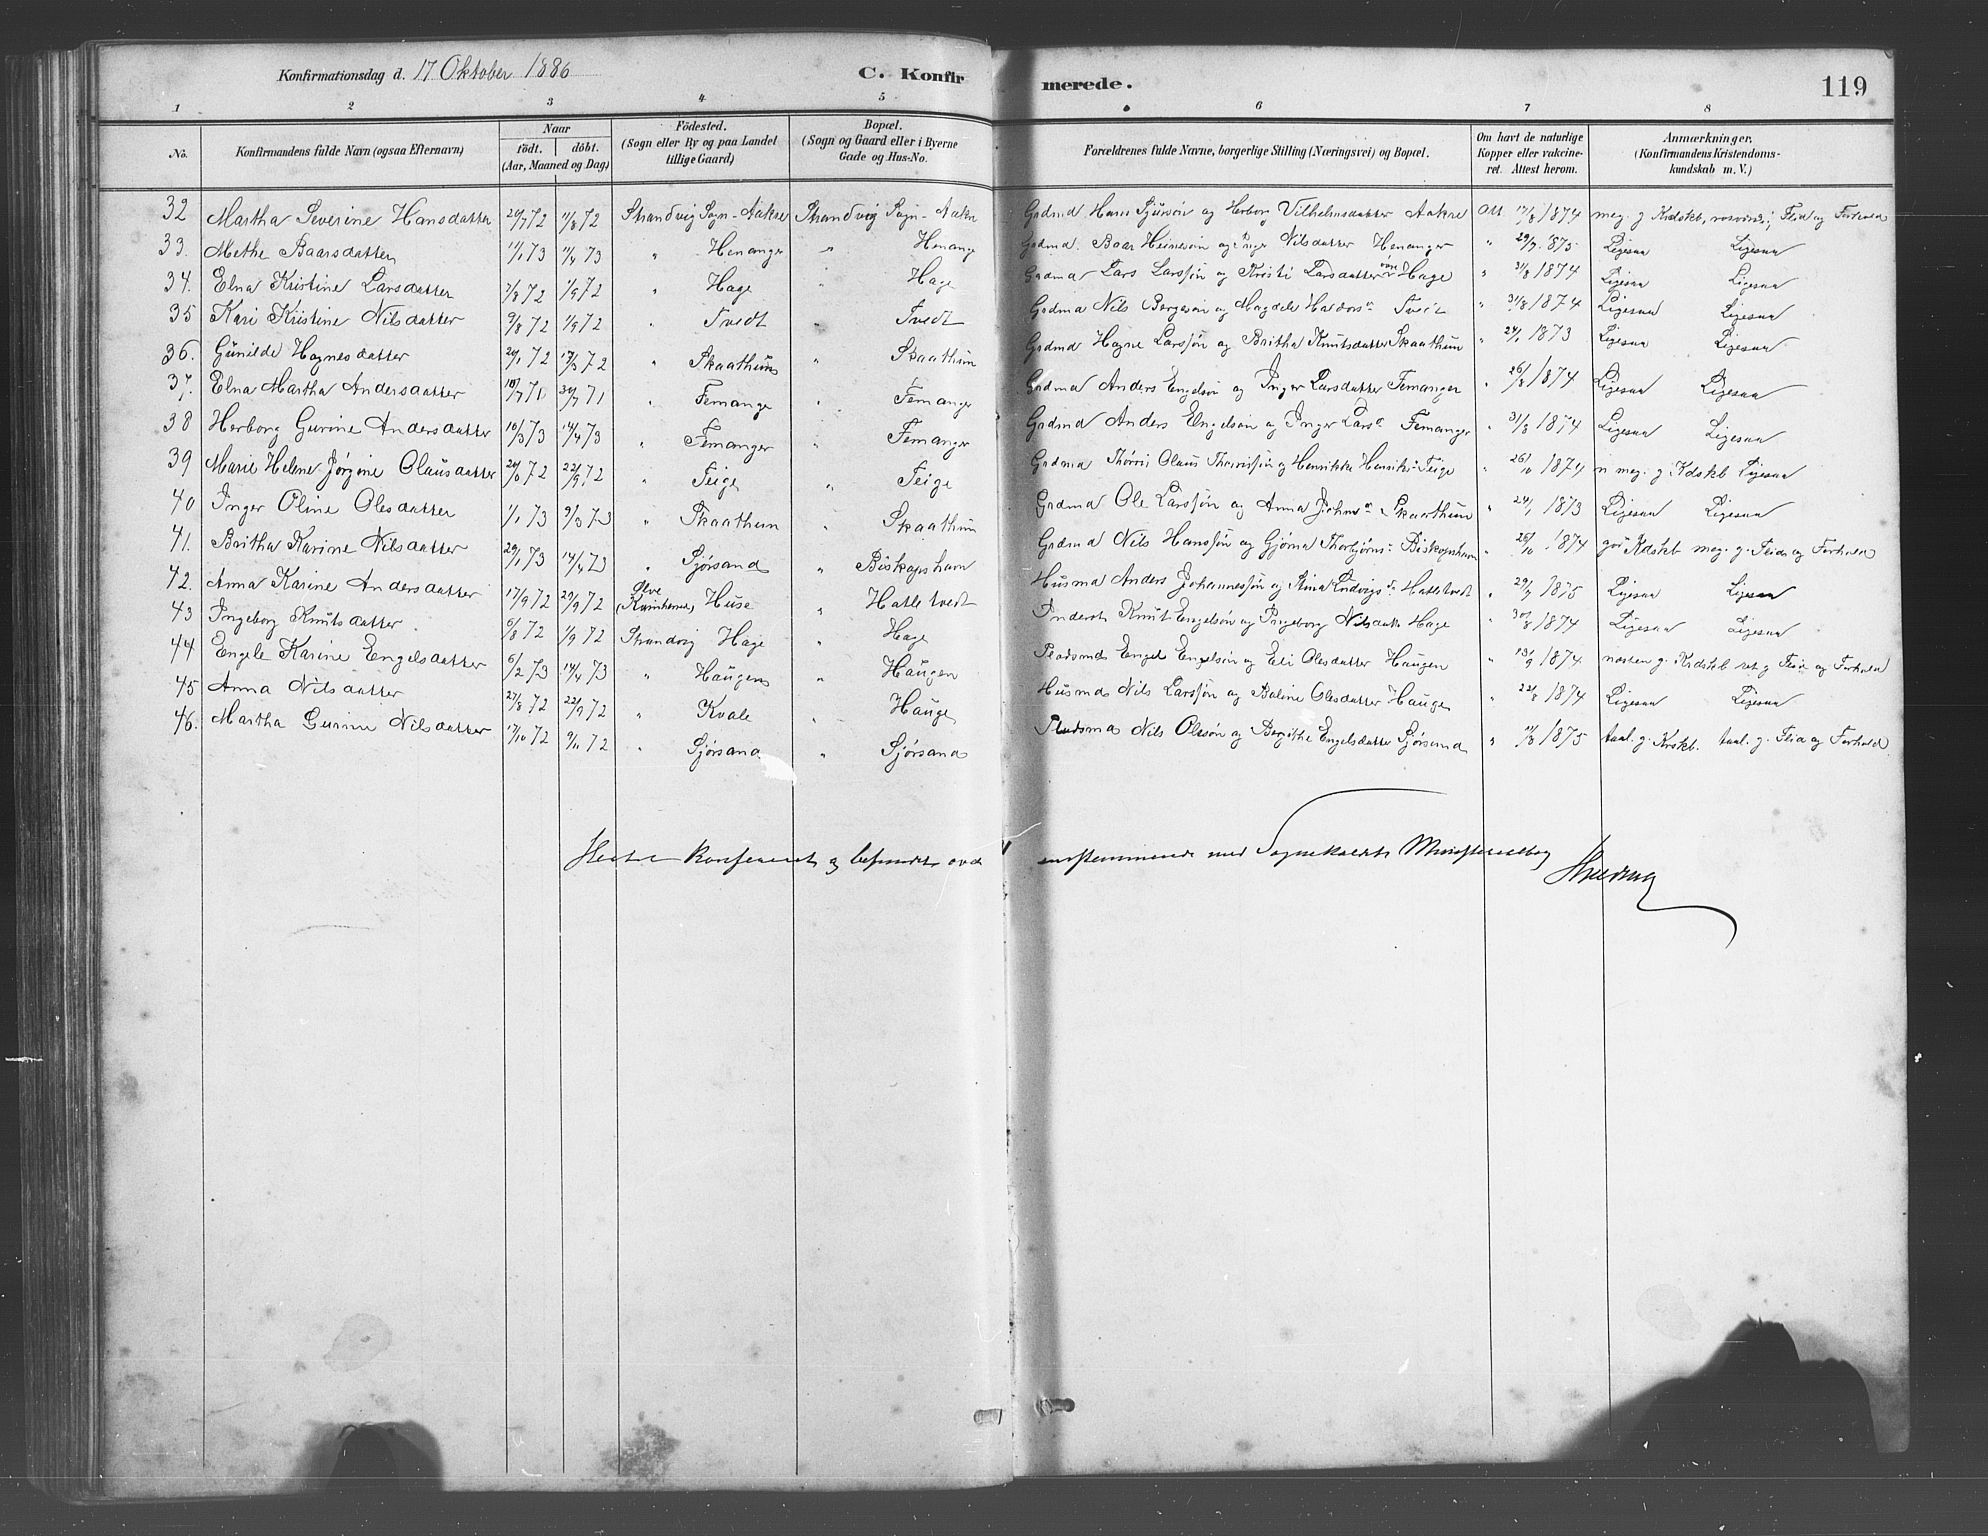 Konfirmationsdag d. 17 Oktober 1886 C. Konfir merede. 119
1 2 3 4 5 6 7 8
No. Konfirmandens fulde Navn (ogsaa Efternavn) Naar födt. döbt. (Aar, Maaned og Dag) Födested. (Sogn eller By og paa Landet tillige Gaard) Bopæl. (Sogn og Gaard eller i Byerne Gade og Hus-No. Forældrenes fulde Navne, borgerlige Stilling (Næringsvei) og Bopæl. Om havt de naturlige Kopper eller vakcineret. Attest herom. Anmærkninger. (Konfirmandens Kristendomskundskab m. V.)
32 Martha Severine Hansdatter 20/7 72 11/8 72 Strandvig Sogn - Aakre Strandvig Sogn - Aakre Grdmd Hans Sjursön og Herborg Vilhelmsdatter Aakre Att 17/8 1874 meg. g Krdskb, Flid og Forhold
33. Methe Baarsdatter 11/1 73 14/4 73 " Henanger " Henange Grdma. Baar Heinesön og Inger Nilsdatter Henanger " 29/7 1875 Ligesaa Ligesaa
34. Elna Kristine Larsdatter 7/8 72 1/9 72 " Hage " Hage Grdma Lars Larssön og Kristi Larsdatter övre Hage " 31/8 1874 Ligesaa Ligesaa
35 Kari Kristine Nilsdatter 9/8 72 1/9 72 " Tvedt " Tvedt Grdma Nils Börgesön og Magdele Haldors Tveit " 31/8 1874 Ligesaa Ligesaa
36. Gunilde Hognesdatter 20/1 72 17/3 72 " Skaathun " Skaathun Grdmd Hogne Larssön og Britha Knutsdatter Skaathun " 24/1 1873 Ligesaa Ligesaa
37. Elna Martha Andersdatter 10/7 71 30/7 71 " Femange " Femanger Grdma Anders Engelsön og Inger Larsdatter Femanger " 26/8 1874 Ligesaa Ligesaa
38 Herborg Gurine Andersdatter 10/3 73 14/4 73 " Femanger " Femanger Grdmd Anders Engelsön og Inger Lars Femanger " 31/8 1874 Ligesaa Ligesaa
39 Marie Helene Jørgine Olausdatter 20/8 72 22/9 72 " Teige " Teige Grdma Olaus og Henrikke Henriks Teige " 26/10 1874 meg. g Kdskb Ligesaa
40 Inger Oline Olesdatter 1/1 73 9/3 73 " Skaathun " Skaathun Grdma Ole Larssön og Anna Johns Skaathun " 24/1 1873 Ligesaa Ligesaa
41. Britha Karine Nilsdatter 29/1 73 14/4 73 " Sjørsand " Biskopshavn Grdmd Nils Hanssön og Gjørna Thorbjörns Biskopshavn " 26/10 1874 god Kdskb meg. g. Flid og Forhold
42. Anna Karine Andersdatter 17/9 72 29/9 72 Ølve (Kvinherred) Huse " Hatletvedt Husma Anders Johannessön og Stina Ludvigs Hatletvedt " 29/7 1875 Ligesaa Ligesaa
43 Ingeborg Knutsdatter 6/8 72 1/9 72 Strandvig Hage " Hage Inderst Knut Engelsön og Ingeborg Nilsdatt Hage " 30/8 1874 Ligesaa Ligesaa
44 Engele Karine Engelsdatter 6/2 73 14/4 73 " Haugen " Haugen Pladsmd Engel Engelsön og Eli Olesdatter Haugen " 13/9 1874 næsten g. Krdskb Flid og Forhold
45 Anna Nilsdatter 27/8 72 22/9 72 " Kvale " Hauge Husmd Nils Larssön og Baline Olesdatter Hauge " 22/8 1874 Ligesaa Ligesaa
46. Martha Gurine Nilsdatter 17/10 72 9/11 72 " Sjørsand " Sjørsand Pladsma Nils Olssön og Bergithe Engelsdatter Sjørsand " 1875 taal. g. Krskb. taal. g. Flid og Forhold
Heste Konfereret og befundet overensstemmende med Sognekaldets Ministerialbog